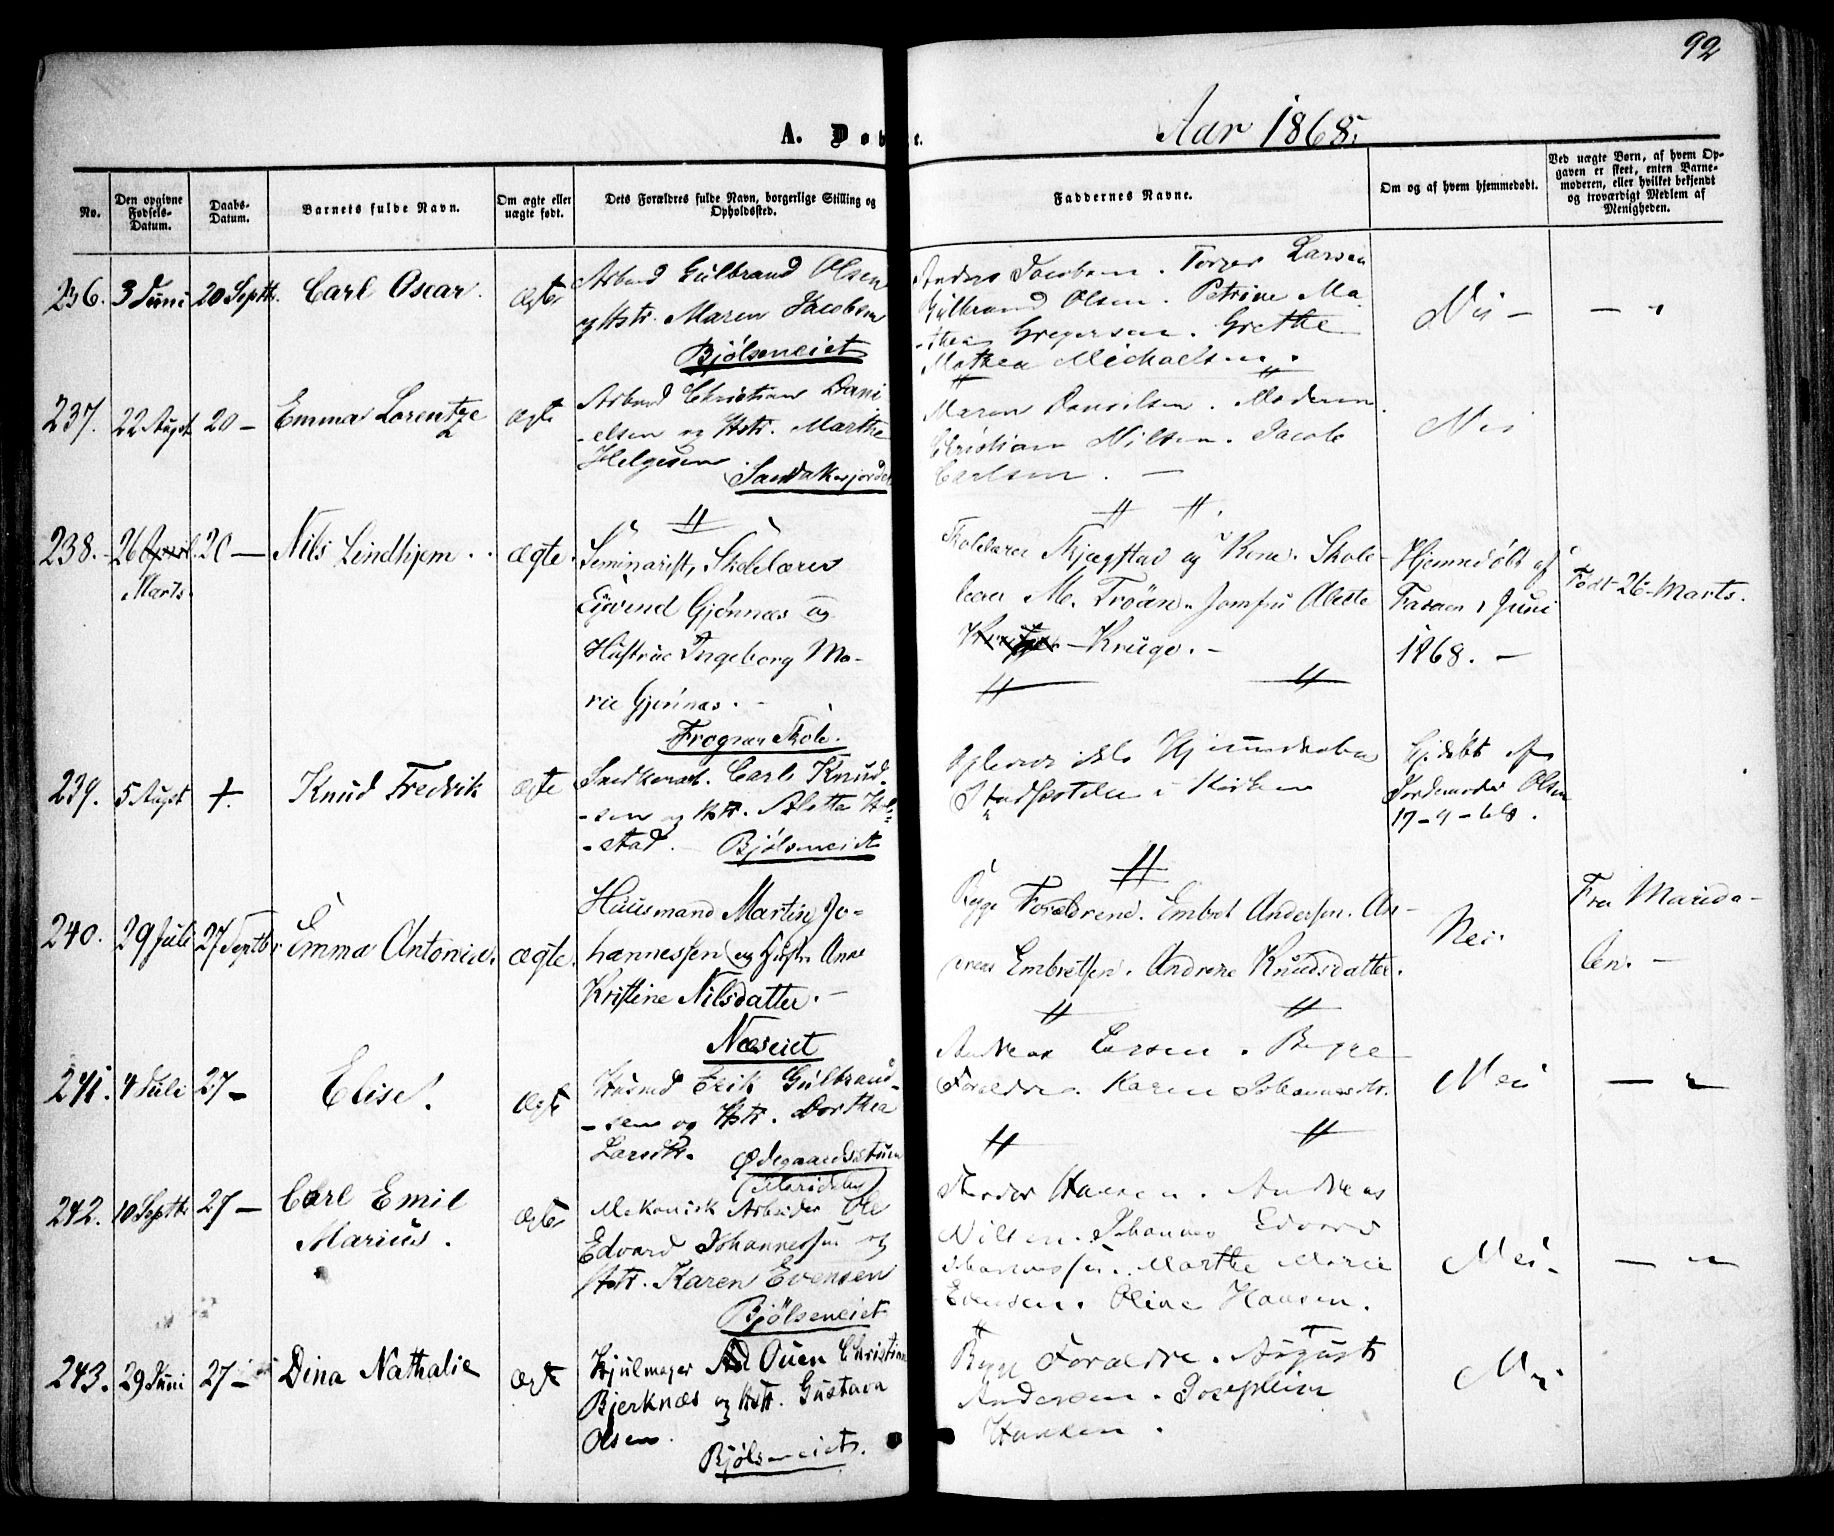 92
A. Døbte.
Aar 1868.
No.
Den opgivne Fødsels-Datum.
Daabs-Datum.
Barnets fulde Navn.
Om ægte eller uægte født.
Dets Forældres fulde Navn, borgerlige Stilling og Opholdssted.
Faddernes Navne.
Om og af hvem hjemmedøbt.
Ved uægte Børn, af hvem Opgaven er skeet, enten Barnemoderen, eller hvilket bekjendt og troværdigt Medlem af Menigheden.
236. 3 Juni 20 Septbr. Carl Oscar. Ægte
Arbmd Gulbrand Olsen
og Hstr. Maren Jacobsen
Bjølseneiet
Anders Jacobsen. Torger Larsen
Gulbrand Olsen. Petrine Ma-
-thea Gregersen. Grethe
Mathea Michaelsen.
Nei —
237. 22 Augst 20 — Emma Lorentze
a
Ægte
Arbmd Christian Dani
-elsen og Hstr. Marthe
Helgesen
Sandakerjordet
Maren Danielsen. Moderen.
Christian Nilsen. Jacob
Carlsen. —
Nei
238. 26 April 20 — Nils Lindhjem. Ægte.
Marts.
Seminarist, Skolelærer
Ejvind Gjønnæs og
Hustrue Ingeborg Ma-
rie Gjønnæs.
Frogner Skole.
Skolelærer Skjægstad og Kone. Skole-
lærer M. Trøan. Jomfru Alette
Kruge. —
Hjemmedøbt af
Faderen 1 Juni
1868. —
Født 26 Marts.
239. 5 Augst +. Knud Fredrik Ægte
Snedkerarb. Carl Knud-
-sen og Hstr. Aletta Hol-
-stad. — Bjølseneiet
Opleves ikke Hjemmedaaben
Stadfæstelse i Kirken
Hjdøbt af
Jordemoder Olsen
17-9-68.
240. 29 Juli 27 Septbr Emma Antonie. Ægte.
Huusmand Martin Jo-
hannessen og Hustr. Anne
Kristine Nilsdatter. —
Næseiet
Begge Forældrene. Embret Andersen. An-
dreas Embretsen. Andrine Knudsdatter.
Nei.
Fra Marida-
len. —
241. 4 Juli 27 — Elise. Ægte
Husmd Erik Gulbrand-
-sen og Hstr. Dorthea
Larsdtr. Ødegaardsstuen
(Maridalen)
Andreas Larsen. Begge
Forældre. Karen Johannesdtr.
Nei
242. 10 Septbr 27 — Carl Emil
Marius.
Ægte
Mekanisk Arbeider Ole
Edvard Johannessen og
Hstr. Karen Evensen
Bjølseneiet
Peder Hansen. Andreas
Nilsen. Johannes Edvard
Johannessen. Marthe Marie
Evensen. Oline Hansen.
Nei —
243. 29 Juni 27 — Dina Nathalie Ægte
Hjulmager Ouen Christian
Bjerknæs og Hstr. Gustava
Olsen.
Bjølseneiet.
Begge Forældre. August
Andersen. Josephine
Hansen.
Nei